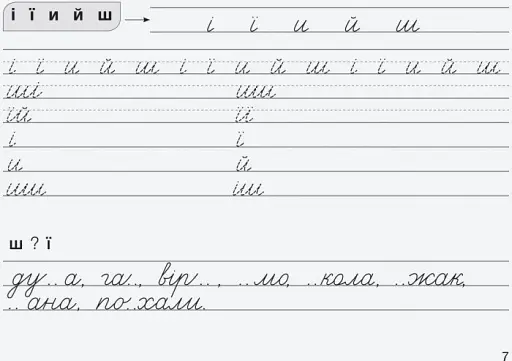 і ї и й ш і ї и й ш
і ї и й ш і ї и й ш і ї и й ш
ші ши
їй її
і ї
и й
иш іш
ш ? ї
ду..а, га.., вір.., ..мо, ..кола, ..жак,
..ана, по..хали.
7